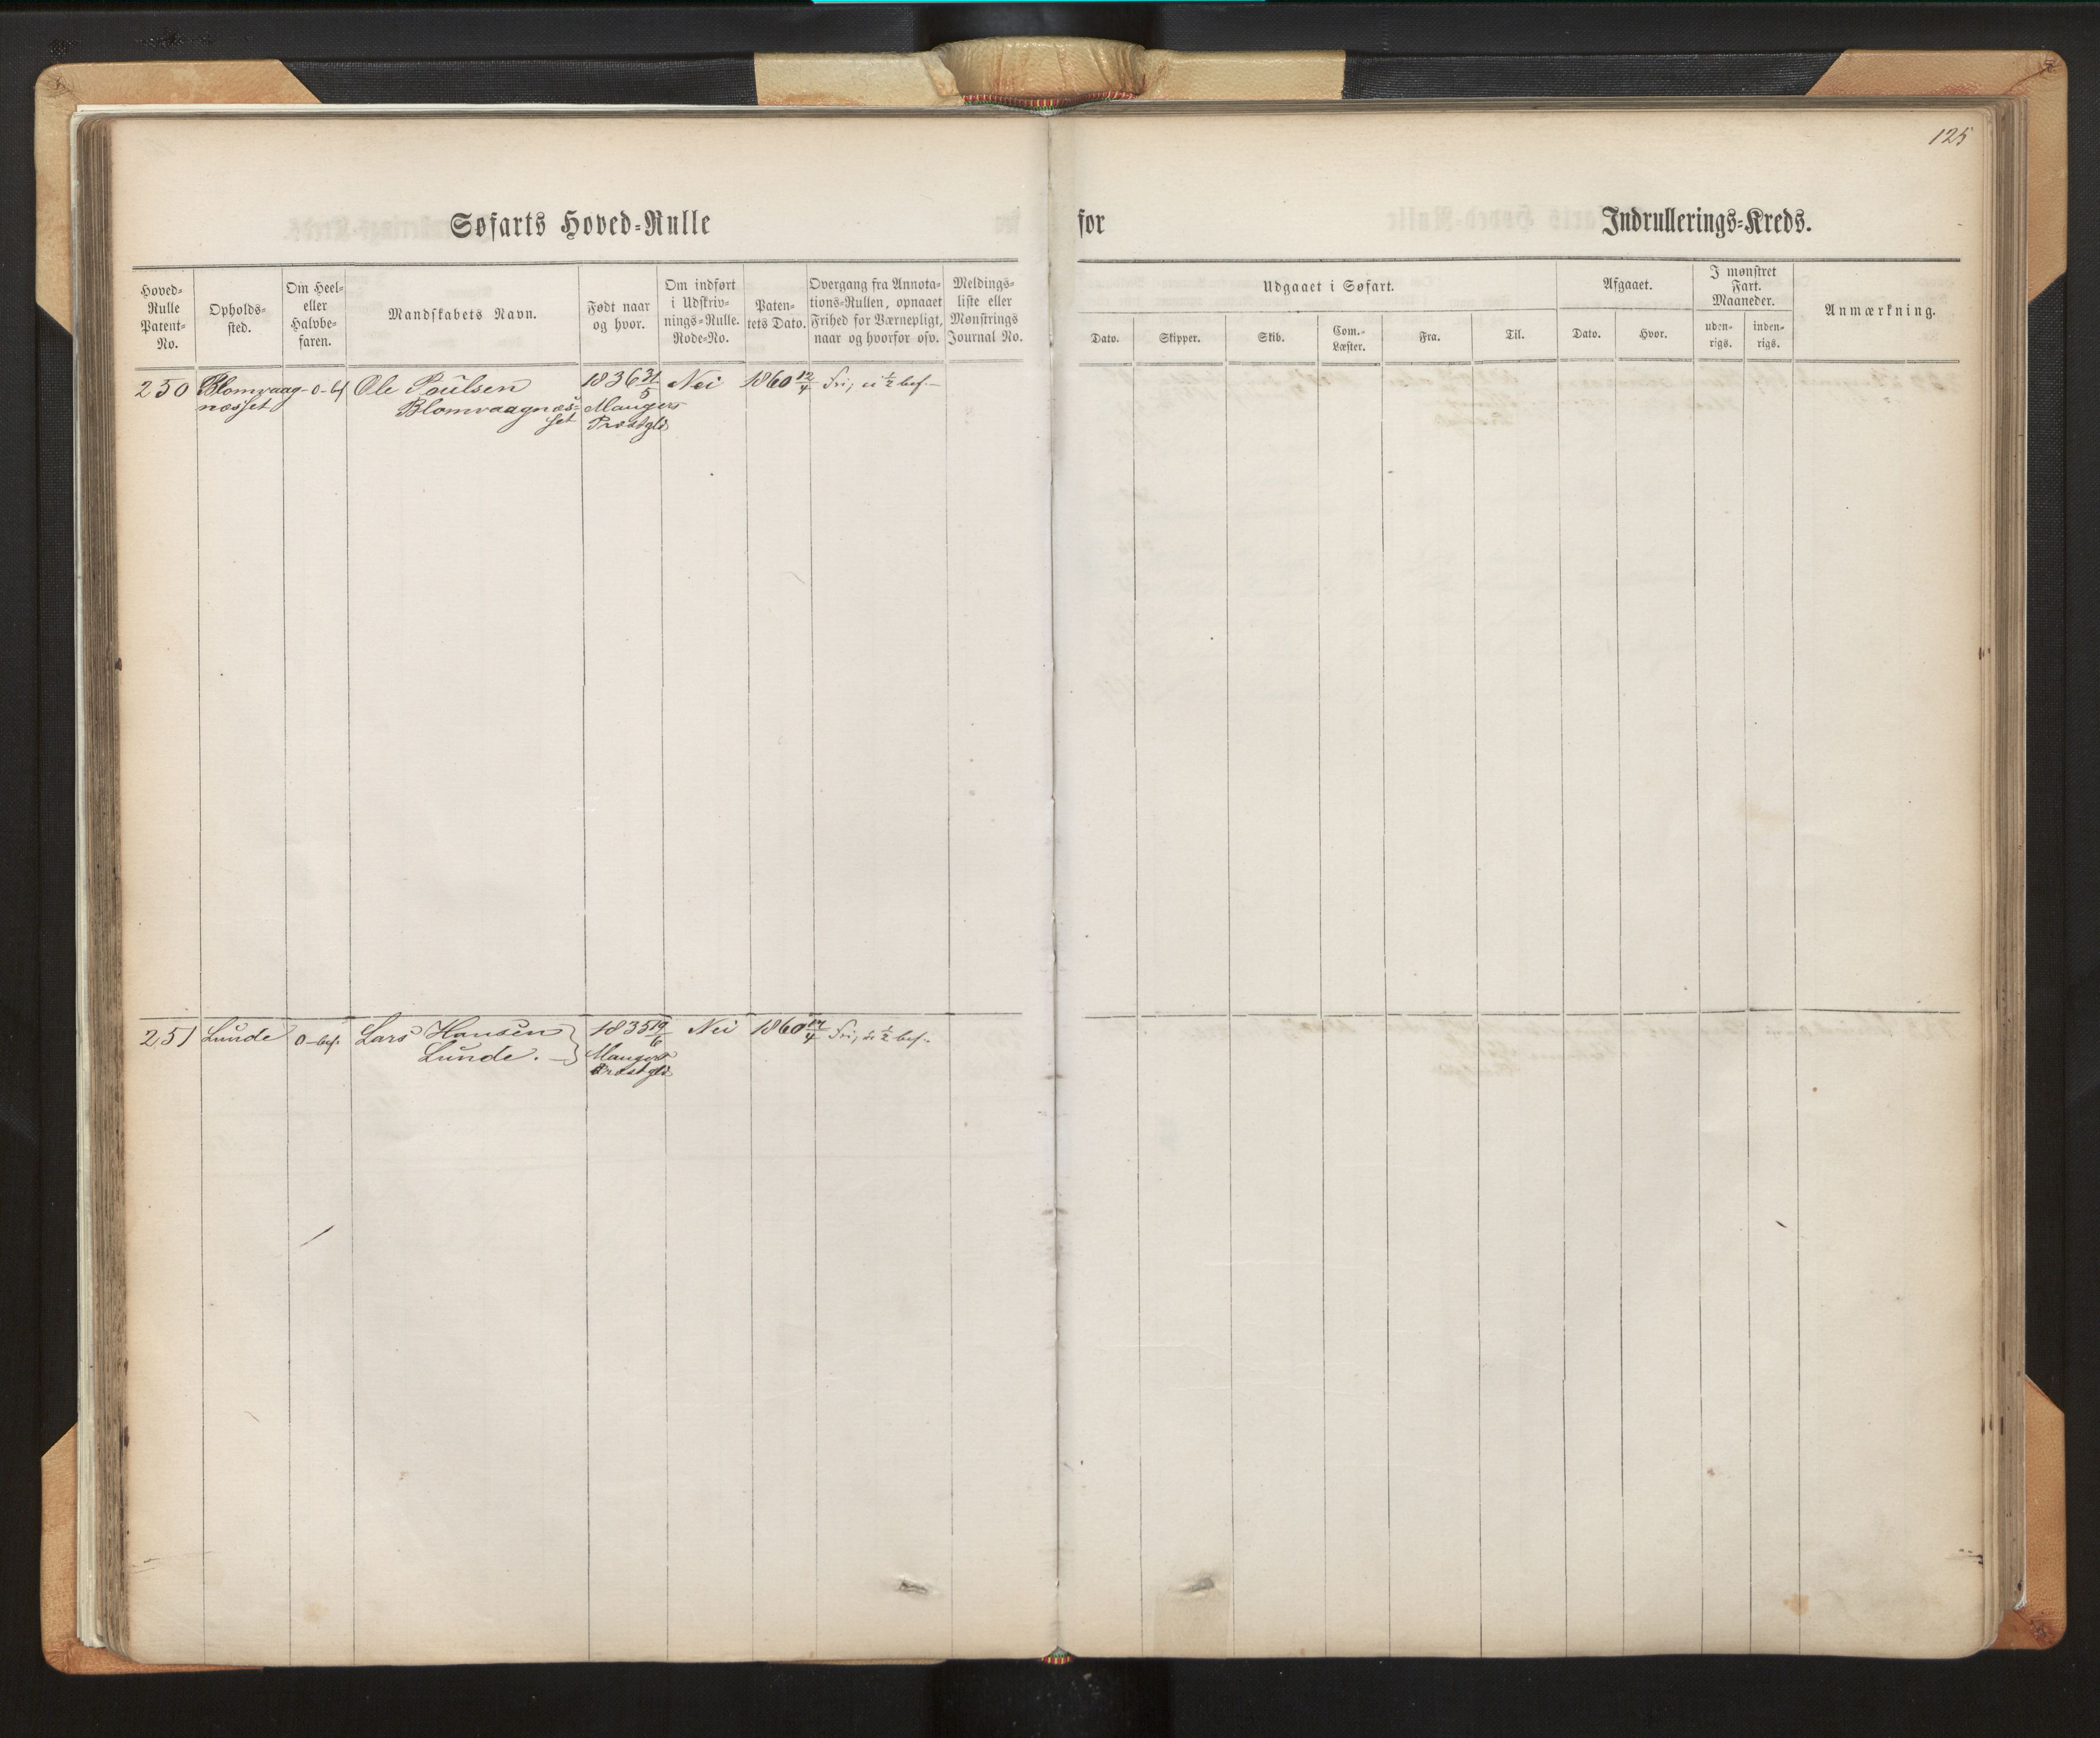 125
Søfarts Hoved-Rulle for Indrullerings-Kreds.
Hoved-
Rulle
Patent-
No.
Opholds-
sted.
Om Heel-
eller
Halvbe-
faren.
Mandskabets Navn.
Født naar
og hvor.
Om indført
i Udskriv-
nings-Rulle.
Rode-No.
Paten-
tets Dato.
Overgang fra Annota-
tions-Rullen, opnaaet
Frihed for Værnepligt,
naar og hvorfor osv.
Meldings-
liste eller
Mønstrings
Journal No.
Udgaaet i Søfart.
Dato.
Skipper.
Skib.
Com.-
Læster.
Fra.
Til.
Afgaaet.
Dato.
Hvor.
I mønstret
Fart.
Maaneder.
uden-
rigs.
inden-
rigs.
Anmærkning.
250 Blomvaag- 0-bf Ole Poulsen 1836 31/5 Nei 1860 12/4 fri, ei ½ bef.
næsset Blomvaagnæs- Mangers
set Præstgld
251 Lunde 0-bef. Lars Hansen 1835 19/6 Nei 1860 /4 fri, ei ½ bef.
Lunde. Mangers
Præstgld